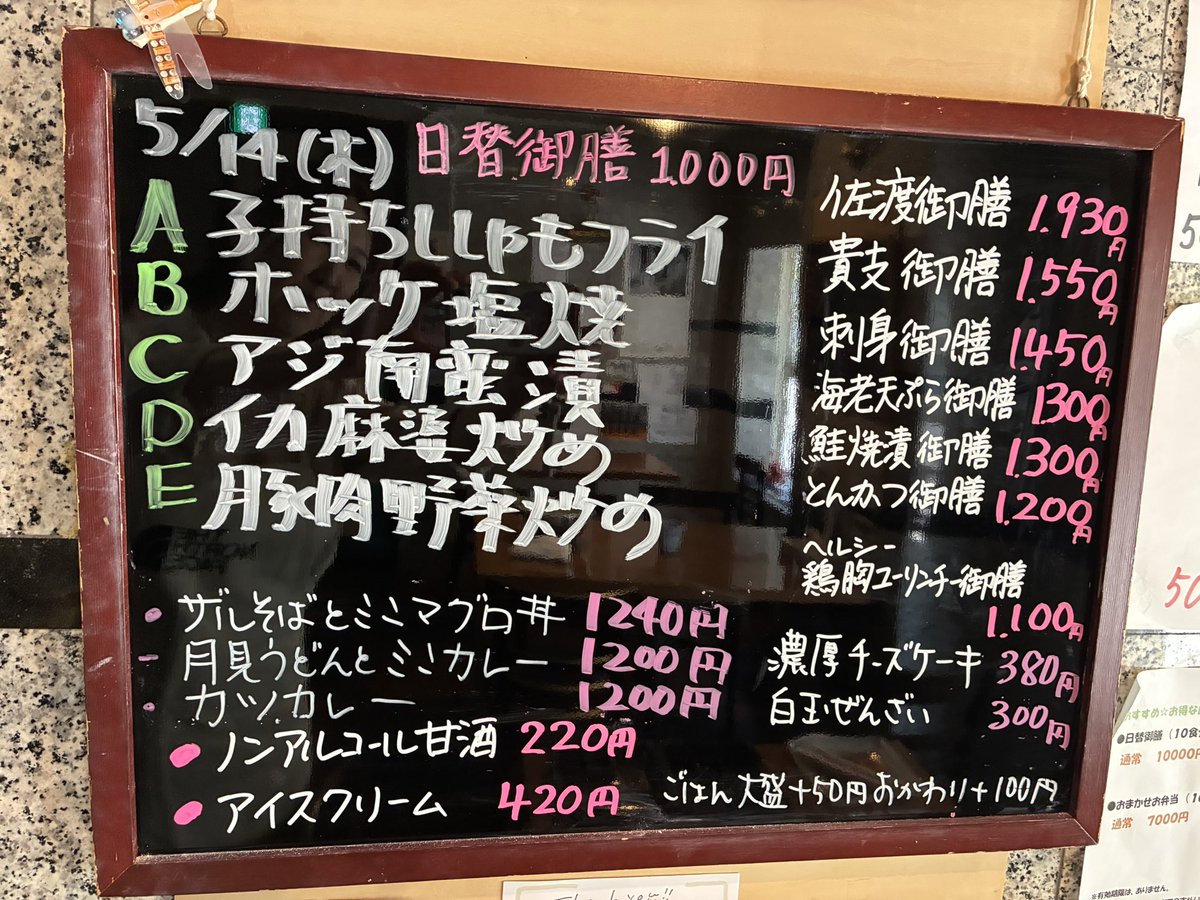 5/14(木) 日替御膳 1.000円
A 子持ちししゃもフライ
B ホッケ塩焼
C アジ南蛮漬
D イカ麻婆炒め
E 豚肉野菜炒め
・ザルそばとミニマグロ丼 1240円
- 月見うどんとミニカレー 1200円
・カツカレー 1200円
● ノンアルコール甘酒 220円
● アイスクリーム 420円
佐渡御膳 1.930円
貴支御膳 1.550円
刺身御膳 1.450円
海老天ぷら御膳 1300円
鮭焼漬御膳 1.300円
とんかつ御膳 1.200円
ヘルシー
鶏胸ユーリンチー御膳
1.100円
濃厚チーズケーキ 380円
白玉ぜんざい 300円
ごはん大盛+50円おかわり+100円
おすすめ☆お得な
●日替御膳（10食
通常 10000円
●おまかせお弁当（10
通常 7000円
※有効期限は、ありません。